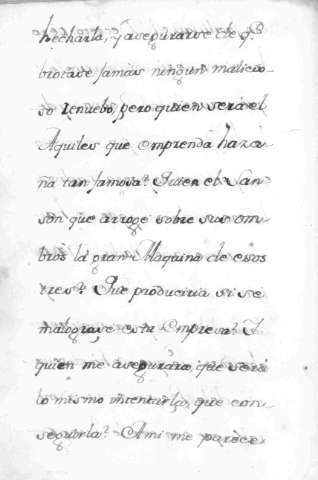 hecharla, y asegurarse de q.e
brotase jamas ningun malicio-
so renuebo, pero quien será el
Aquiles que emprenda haza-
ña tan famosa? Quien el San-
son que arroge sobre sus om-
bros la gran Maquina de esos
tres? Que produciria si se
malograse esta Empresa? Y
quien me asegurara, que será
lo mismo intentarla, que con-
seguirla? A mi me parece